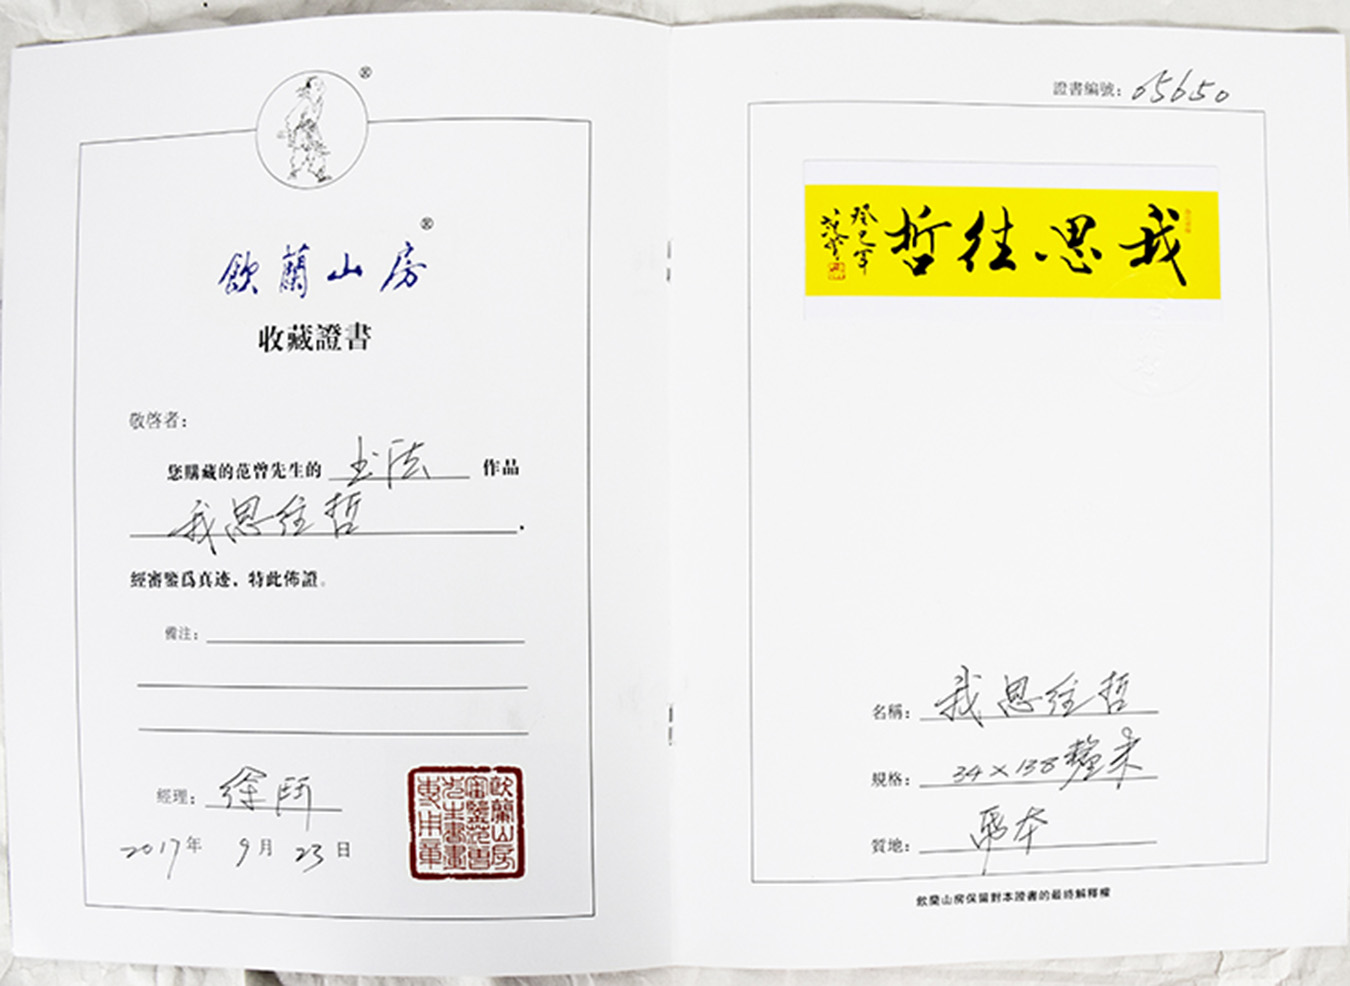 飲蘭山房
收藏證書
敬啓者：
您購藏的范曾先生的 书法 作品
我思往哲.
經審鑒爲真迹，特此佈證。
備注：
經理：
2017年 9月 23日
飲蘭山房
審鑒范曾
先生書畫
專用章
證書編號：05650
我思往哲
癸巳年
范曾
名稱：我思往哲
規格：34×138釐米
質地：纸本
飲蘭山房保留對本證書的最終解釋權